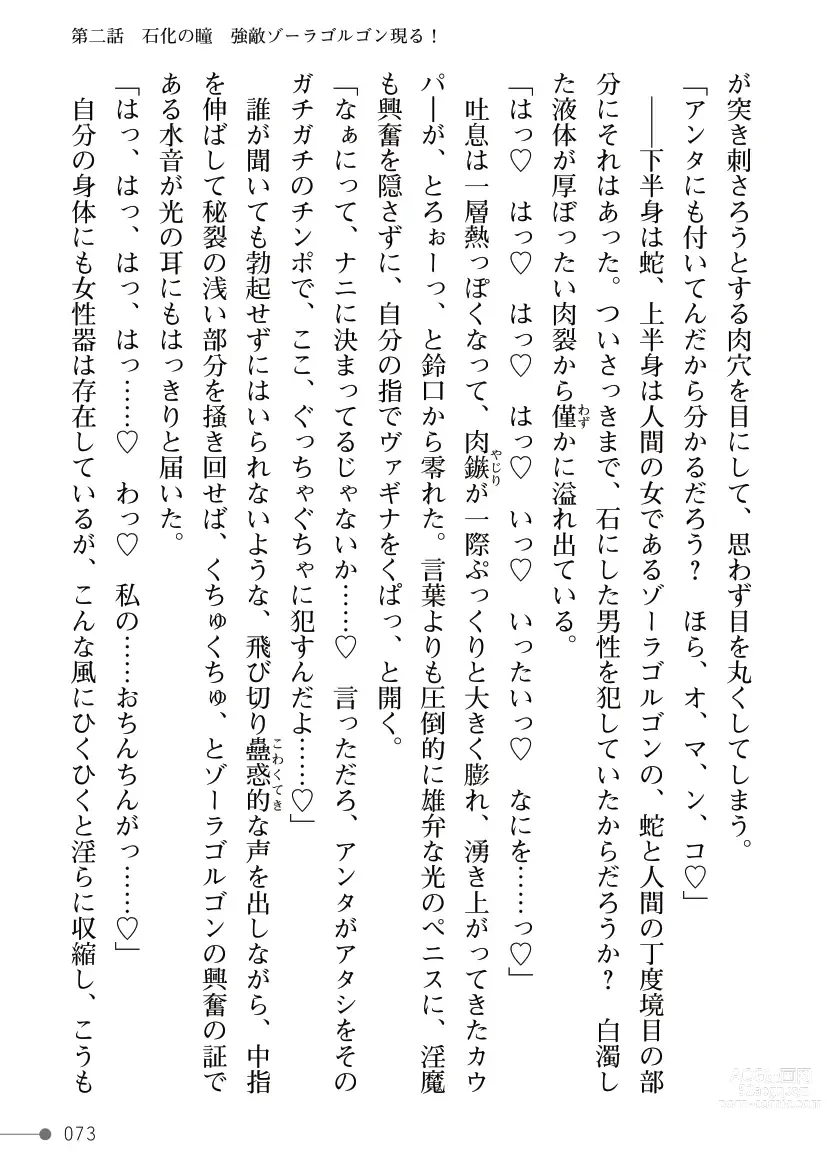 第二話　石化の瞳　強敵ゾーラゴルゴン現る！
が突き刺さろうとする肉穴を目にして、思わず目を丸くしてしまう。
「アンタにも付いてんだから分かるだろう？　ほら、オ、マ、ン、コ♡」
――下半身は蛇、上半身は人間の女であるゾーラゴルゴンの、蛇と人間の丁度境目の部
分にそれはあった。ついさっきまで、石にした男性を犯していたからだろうか？　白濁し
た液体が厚ぼったい肉裂から僅かに溢れ出ている。
「はっ♡　はっ♡　はっ♡　はっ♡　いっ♡　いったいっ♡　なにを……っ♡」
吐息は一層熱っぽくなって、肉鏃が一際ぷっくりと大きく膨れ、湧き上がってきたカウ
パーが、とろぉーっ、と鈴口から零れた。言葉よりも圧倒的に雄弁な光のペニスに、淫魔
も興奮を隠さずに、自分の指でヴァギナをくぱっ、と開く。
「なぁにって、ナニに決まってるじゃないか……♡　言っただろ、アンタがアタシをその
ガチガチのチンポで、ここ、ぐっちゃぐちゃに犯すんだよ……♡」
誰が聞いても勃起せずにはいられないような、飛び切り蠱惑的な声を出しながら、中指
を伸ばして秘裂の浅い部分を掻き回せば、くちゅくちゅ、とゾーラゴルゴンの興奮の証で
ある水音が光の耳にもはっきりと届いた。
「はっ、はっ、はっ、はっ……♡　わっ♡　私の……おちんちんがっ……♡」
自分の身体にも女性器は存在しているが、こんな風にひくひくと淫らに収縮し、こうも
わず
やじり
こわくてき
073